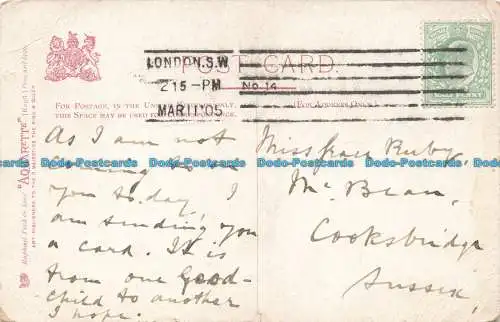 LONDON.S.W
2 15-PM
MAR 11.05
POST CARD.
No. 14
FOR POSTAGE IN THE UNITED ONLY,
THIS SPACE MAY BE USED
(FOR ADDRESS ONLY.)
Raphael Tuck & Sons' "AQUARETTE"
ART PUBLISHERS TO THE KING & QUEEN
As I am not
you to.day, I
am sending you
a card. It is
from one Good-
child to another
I hope.
Miss Grace Ruby,
Mc Bean,
Cooksbridge
Sussex,
Dodo-Postcards Dodo-Postcards Dodo-Postcards Dodo-Postcards Dodo-Postcards